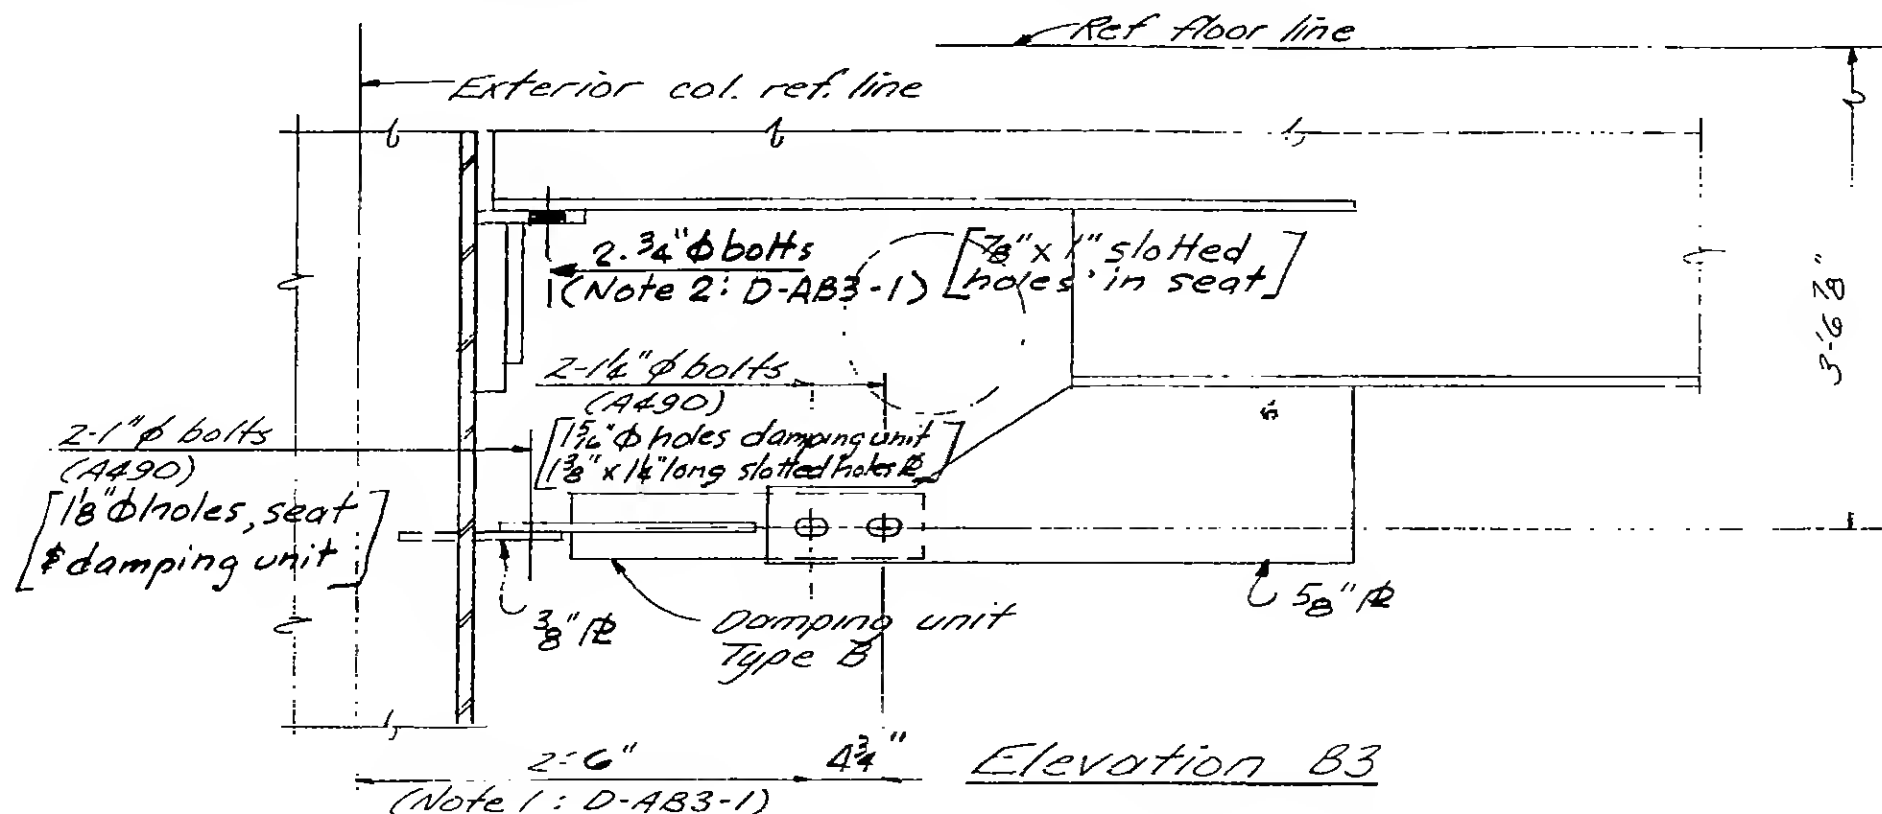 Ref floor line
Exterior col. ref. line
2-3/4"φ bolts
(Note 2: D-AB3-1)
[7/8" x 1" slotted
holes in seat]
3'-6 7/8"
2-1 1/4"φ bolts
(A490)
[1 5/16"φ holes damping unit
1 3/8" x 1 1/2" long slotted holes PL]
2-1"φ bolts
(A490)
[1 1/8"φ holes, seat
& damping unit]
3/8" PL
Damping unit
Type B
5/8" PL
2'-6"
4 3/4"
(Note 1: D-AB3-1)
Elevation B3